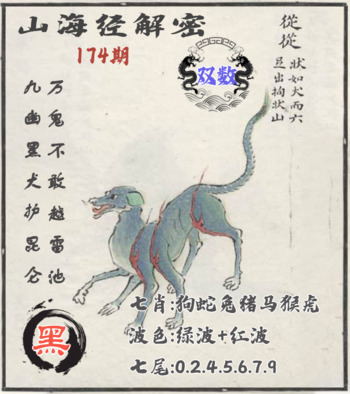 山海经解密
174期
双数
從從
狀如犬而六
足出拘状山
万鬼不敢越雷池
九幽黑犬护昆仑
七肖:狗蛇兔猪马猴虎
波色:绿波+红波
黑
七尾:0.2.4.5.6.7.9